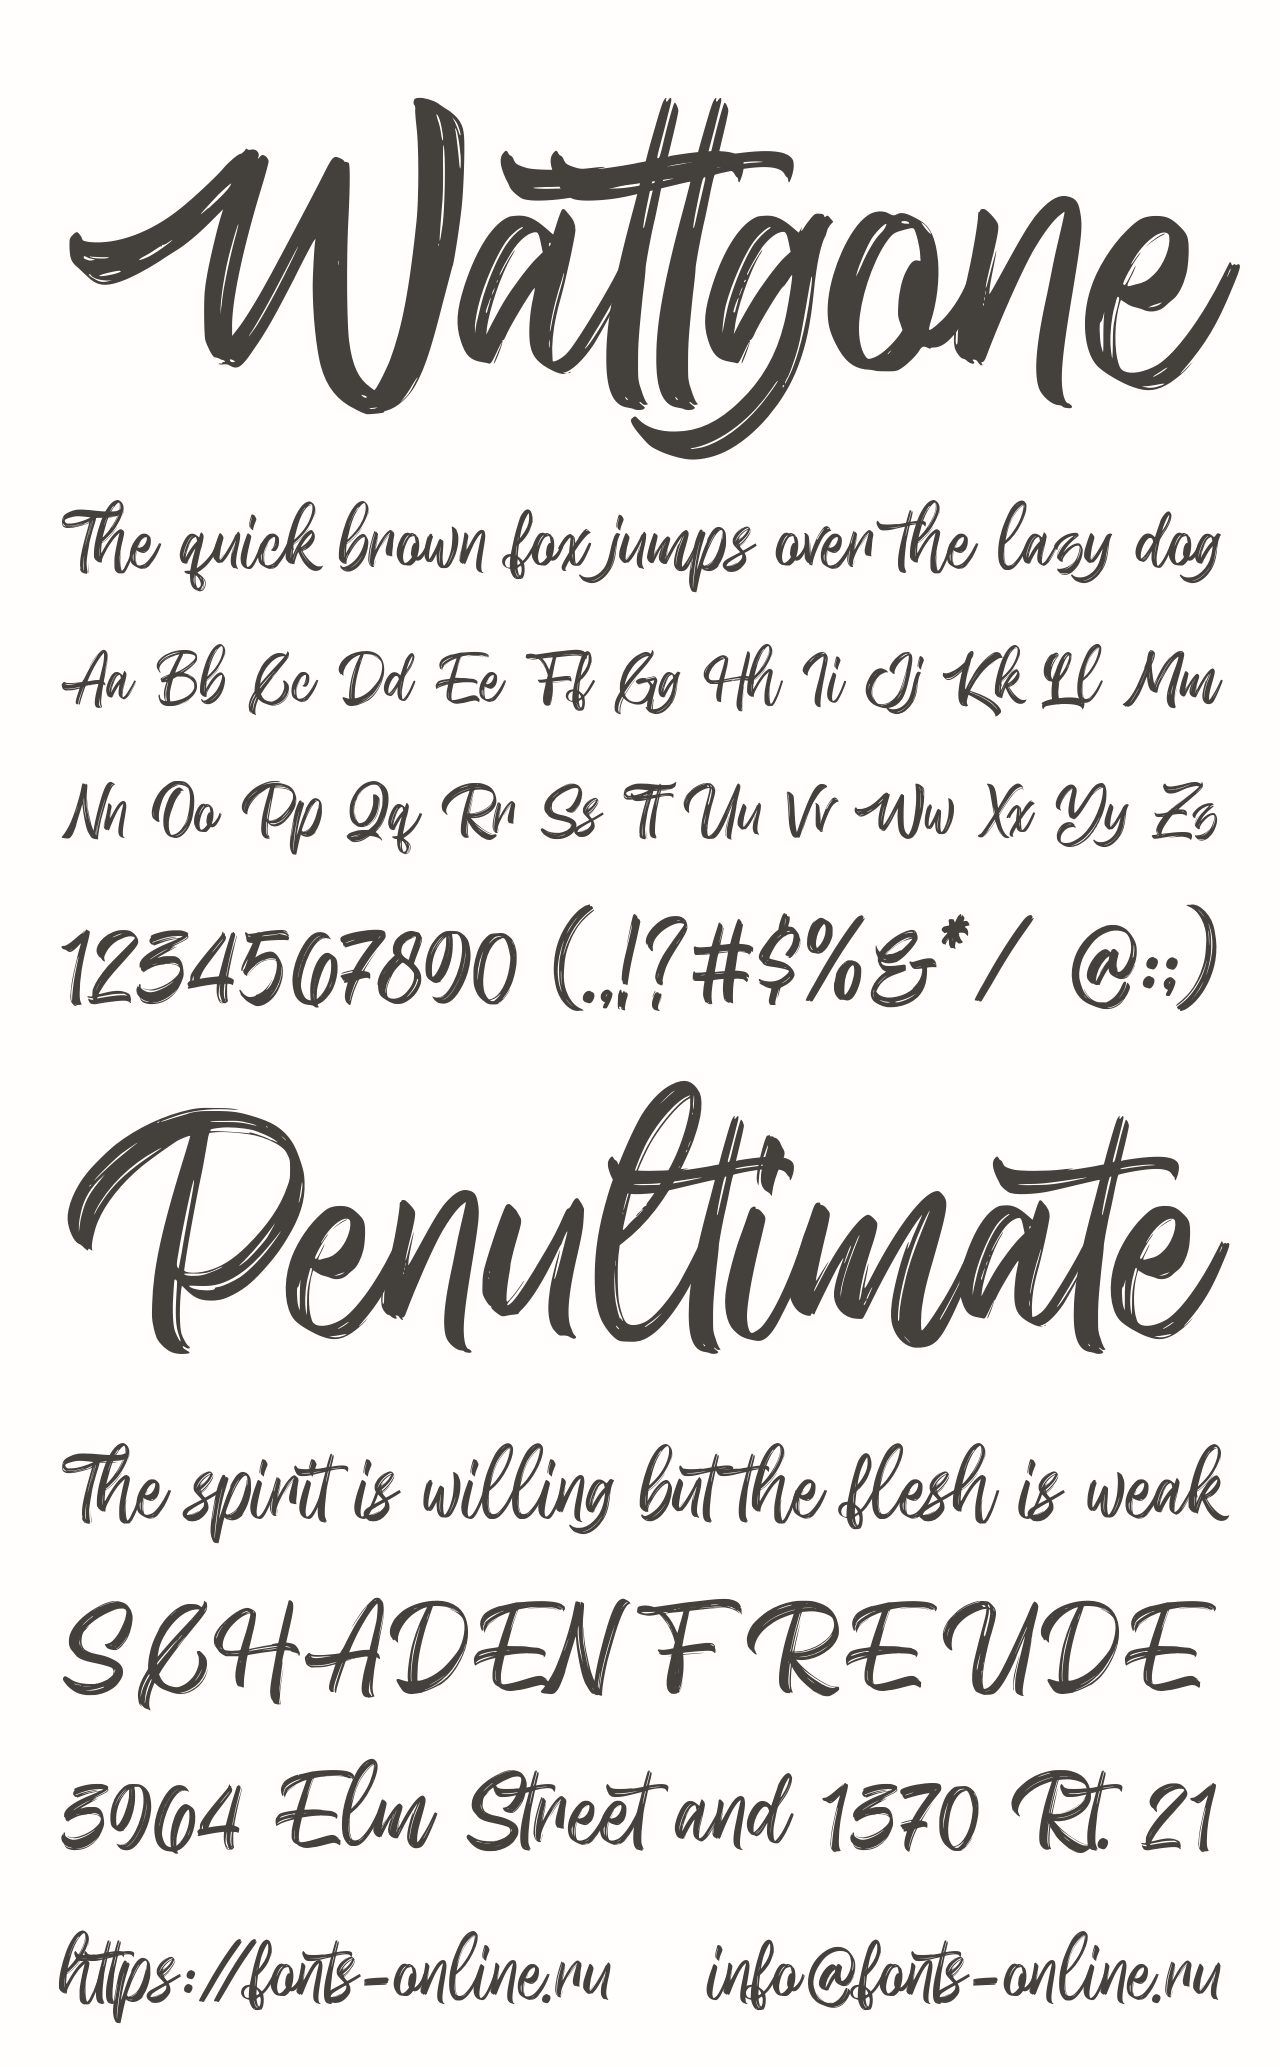 Wattgone
The quick brown fox jumps over the lazy dog
Aa Bb Cc Dd Ee Ff Gg Hh Ii Jj Kk Ll Mm
Nn Oo Pp Qq Rr Ss Tt Uu Vv Ww Xx Yy Zz
1234567890 (.,!?#$%&*/ @:;)
Penultimate
The spirit is willing but the flesh is weak
SCHADENFREUDE
3964 Elm Street and 1370 Rt. 21
https://fonts-online.ru info@fonts-online.ru